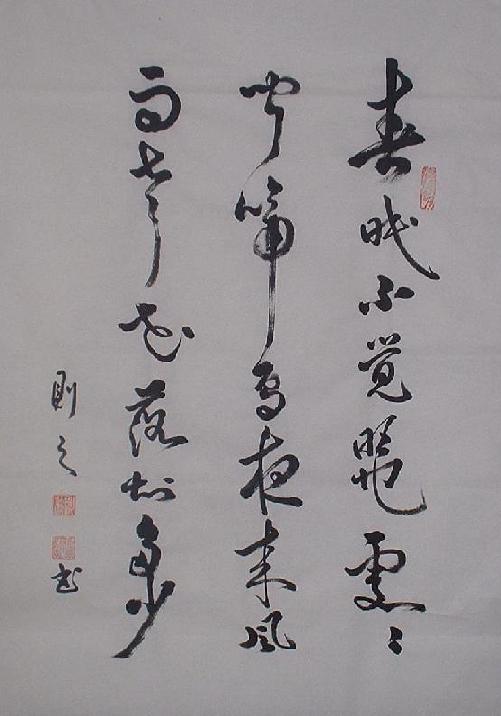 春眠不覚暁処々
聞啼鳥夜来風
雨声花落知多少
則之書